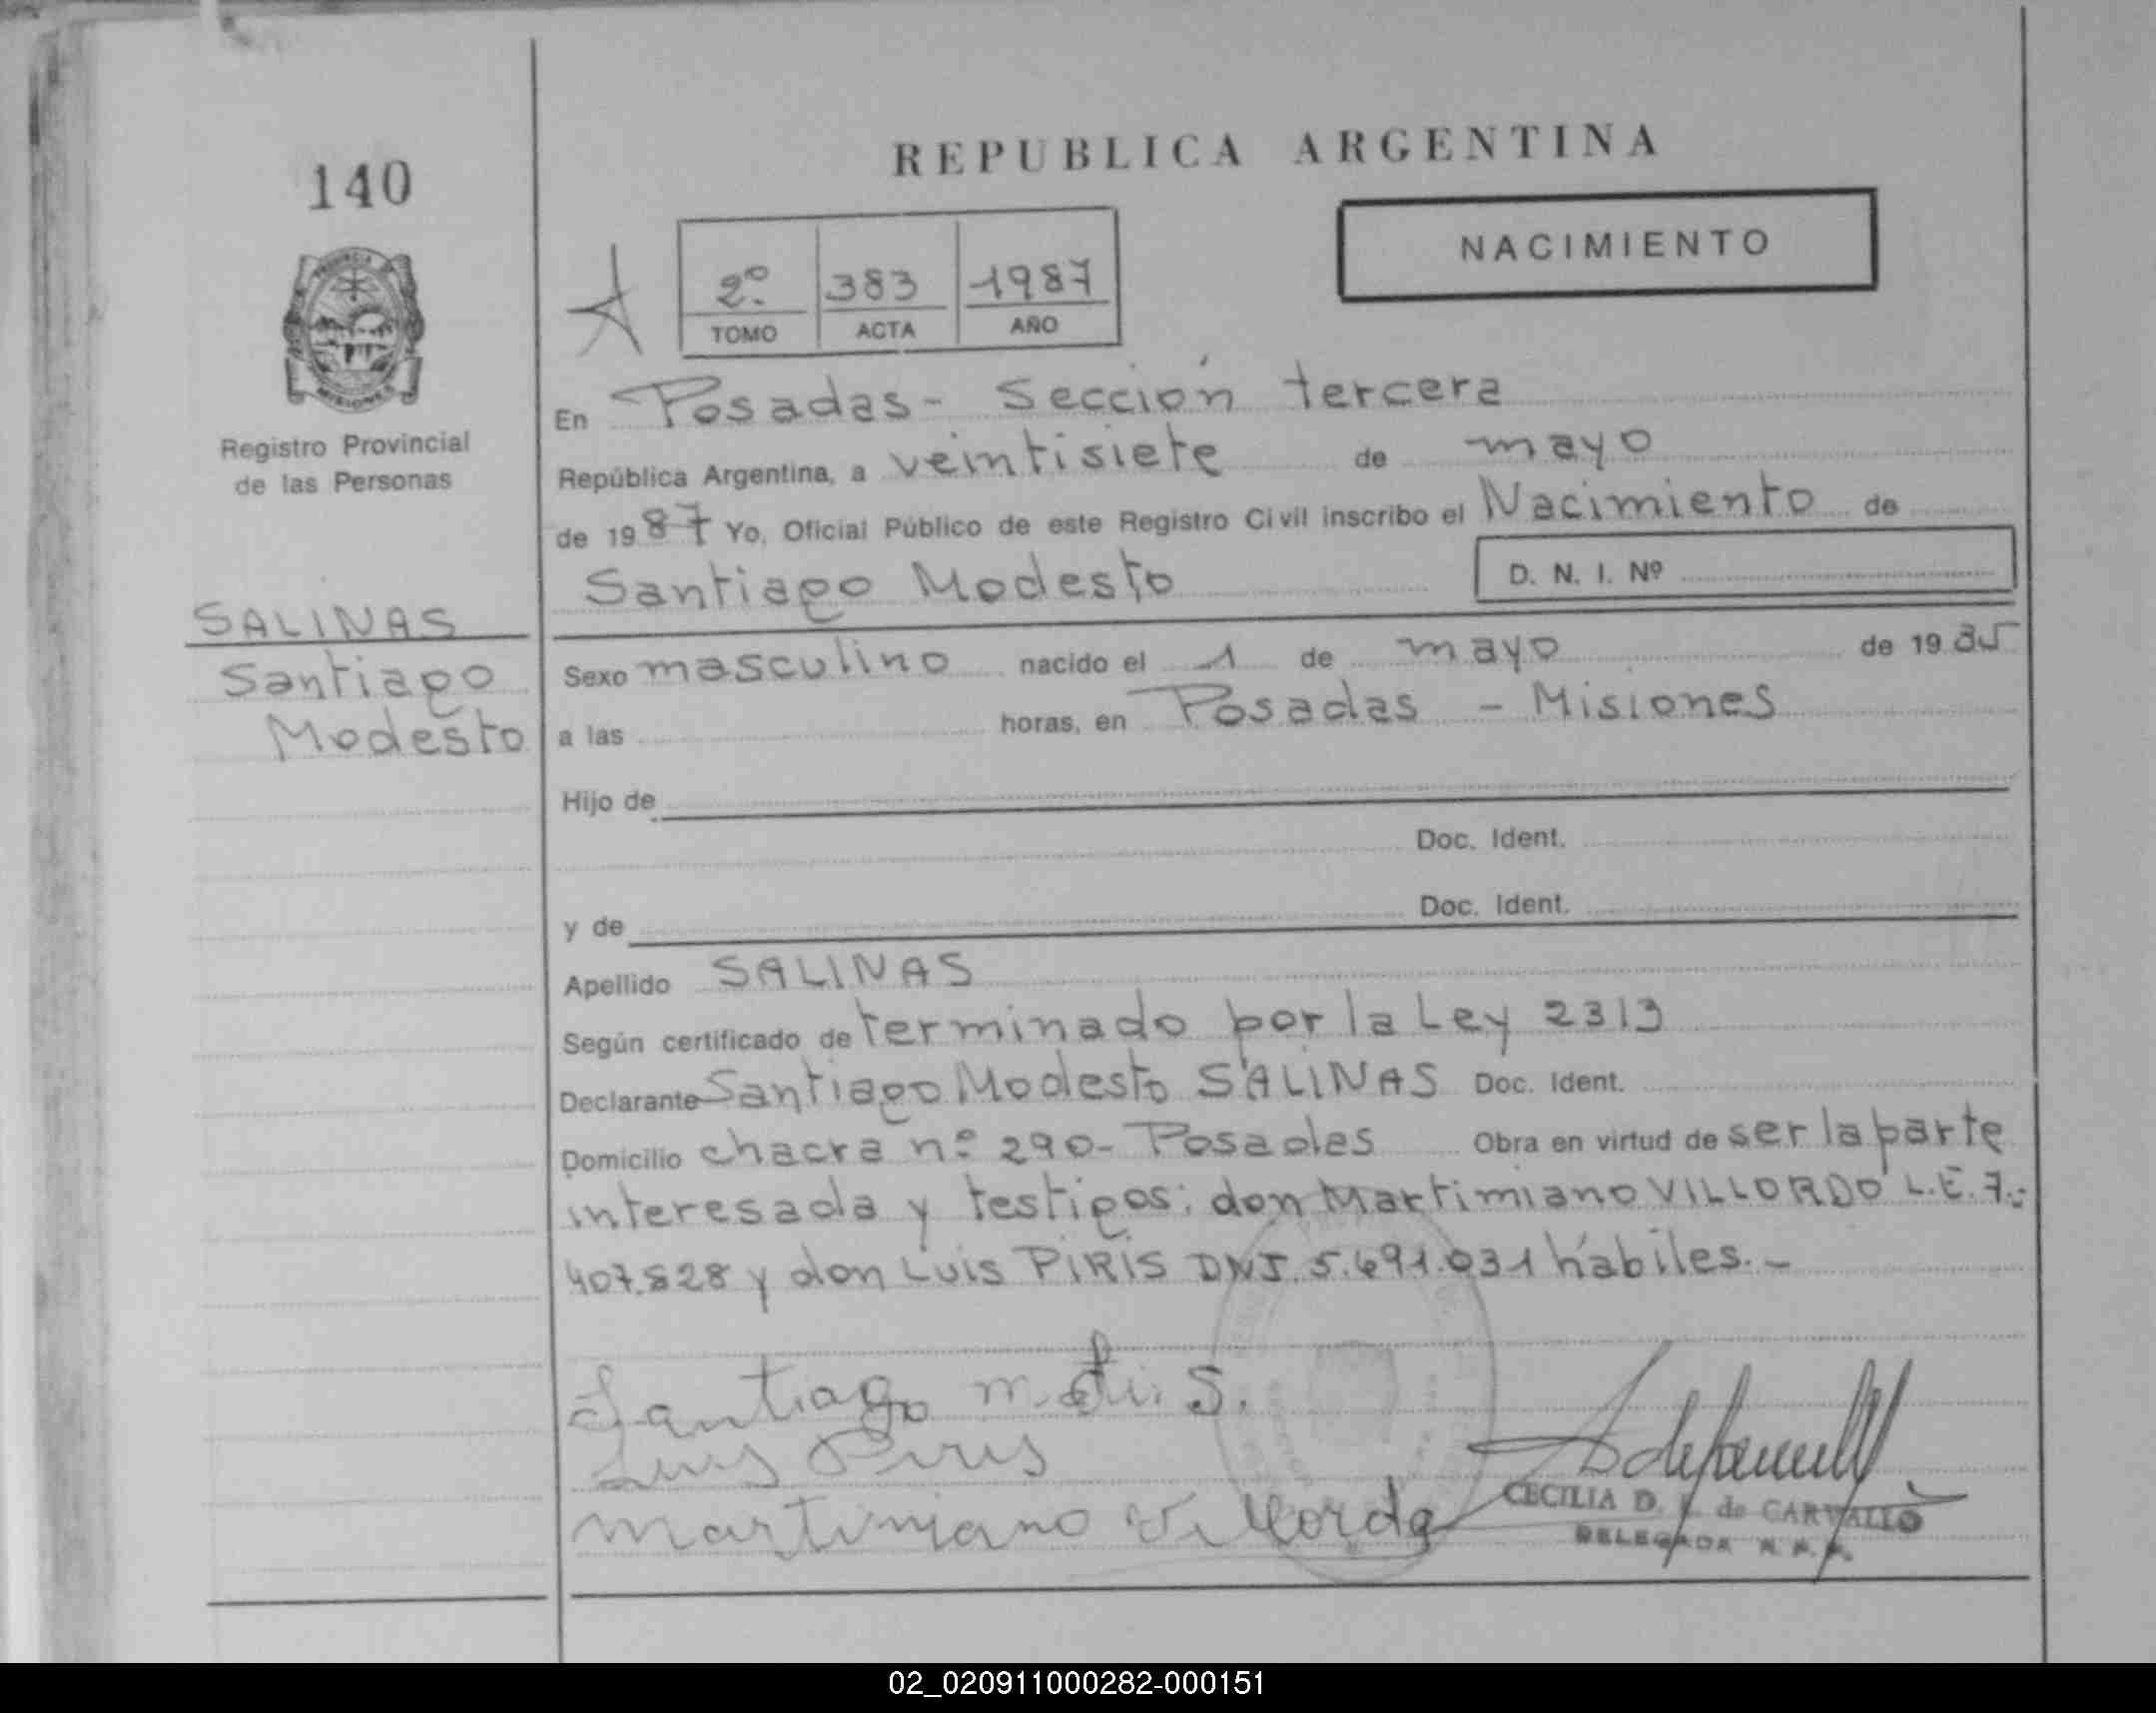 REPUBLICA ARGENTINA
140
NACIMIENTO
2º 383 1987
TOMO ACTA AÑO
En Posadas - Sección tercera
República Argentina, a veintisiete de mayo
de 1987 Yo, Oficial Público de este Registro Civil inscribo el Nacimiento de
Santiago Modesto D. N. I. Nº
Registro Provincial
de las Personas
SALINAS
Santiago
Modesto
Sexo masculino nacido el 1 de mayo de 19
a las horas, en Posadas - Misiones
Hijo de
Doc. Ident.
y de Doc. Ident.
Apellido SALINAS
Según certificado de terminado por la Ley 2313
Declarante Santiago Modesto SALINAS Doc. Ident.
Domicilio chacra nº 290- Posadas Obra en virtud de ser la parte
interesada y testigos: don Martimiano VILLORDO L.E. 7.-
407.828 y don Luis PIRIS DNI. 5.691.031 hábiles.-
Santiago m. S.
Luis Piris
martimiano Villordo
CECILIA D. de CARVALLO
DELEGADA
02_020911000282-000151